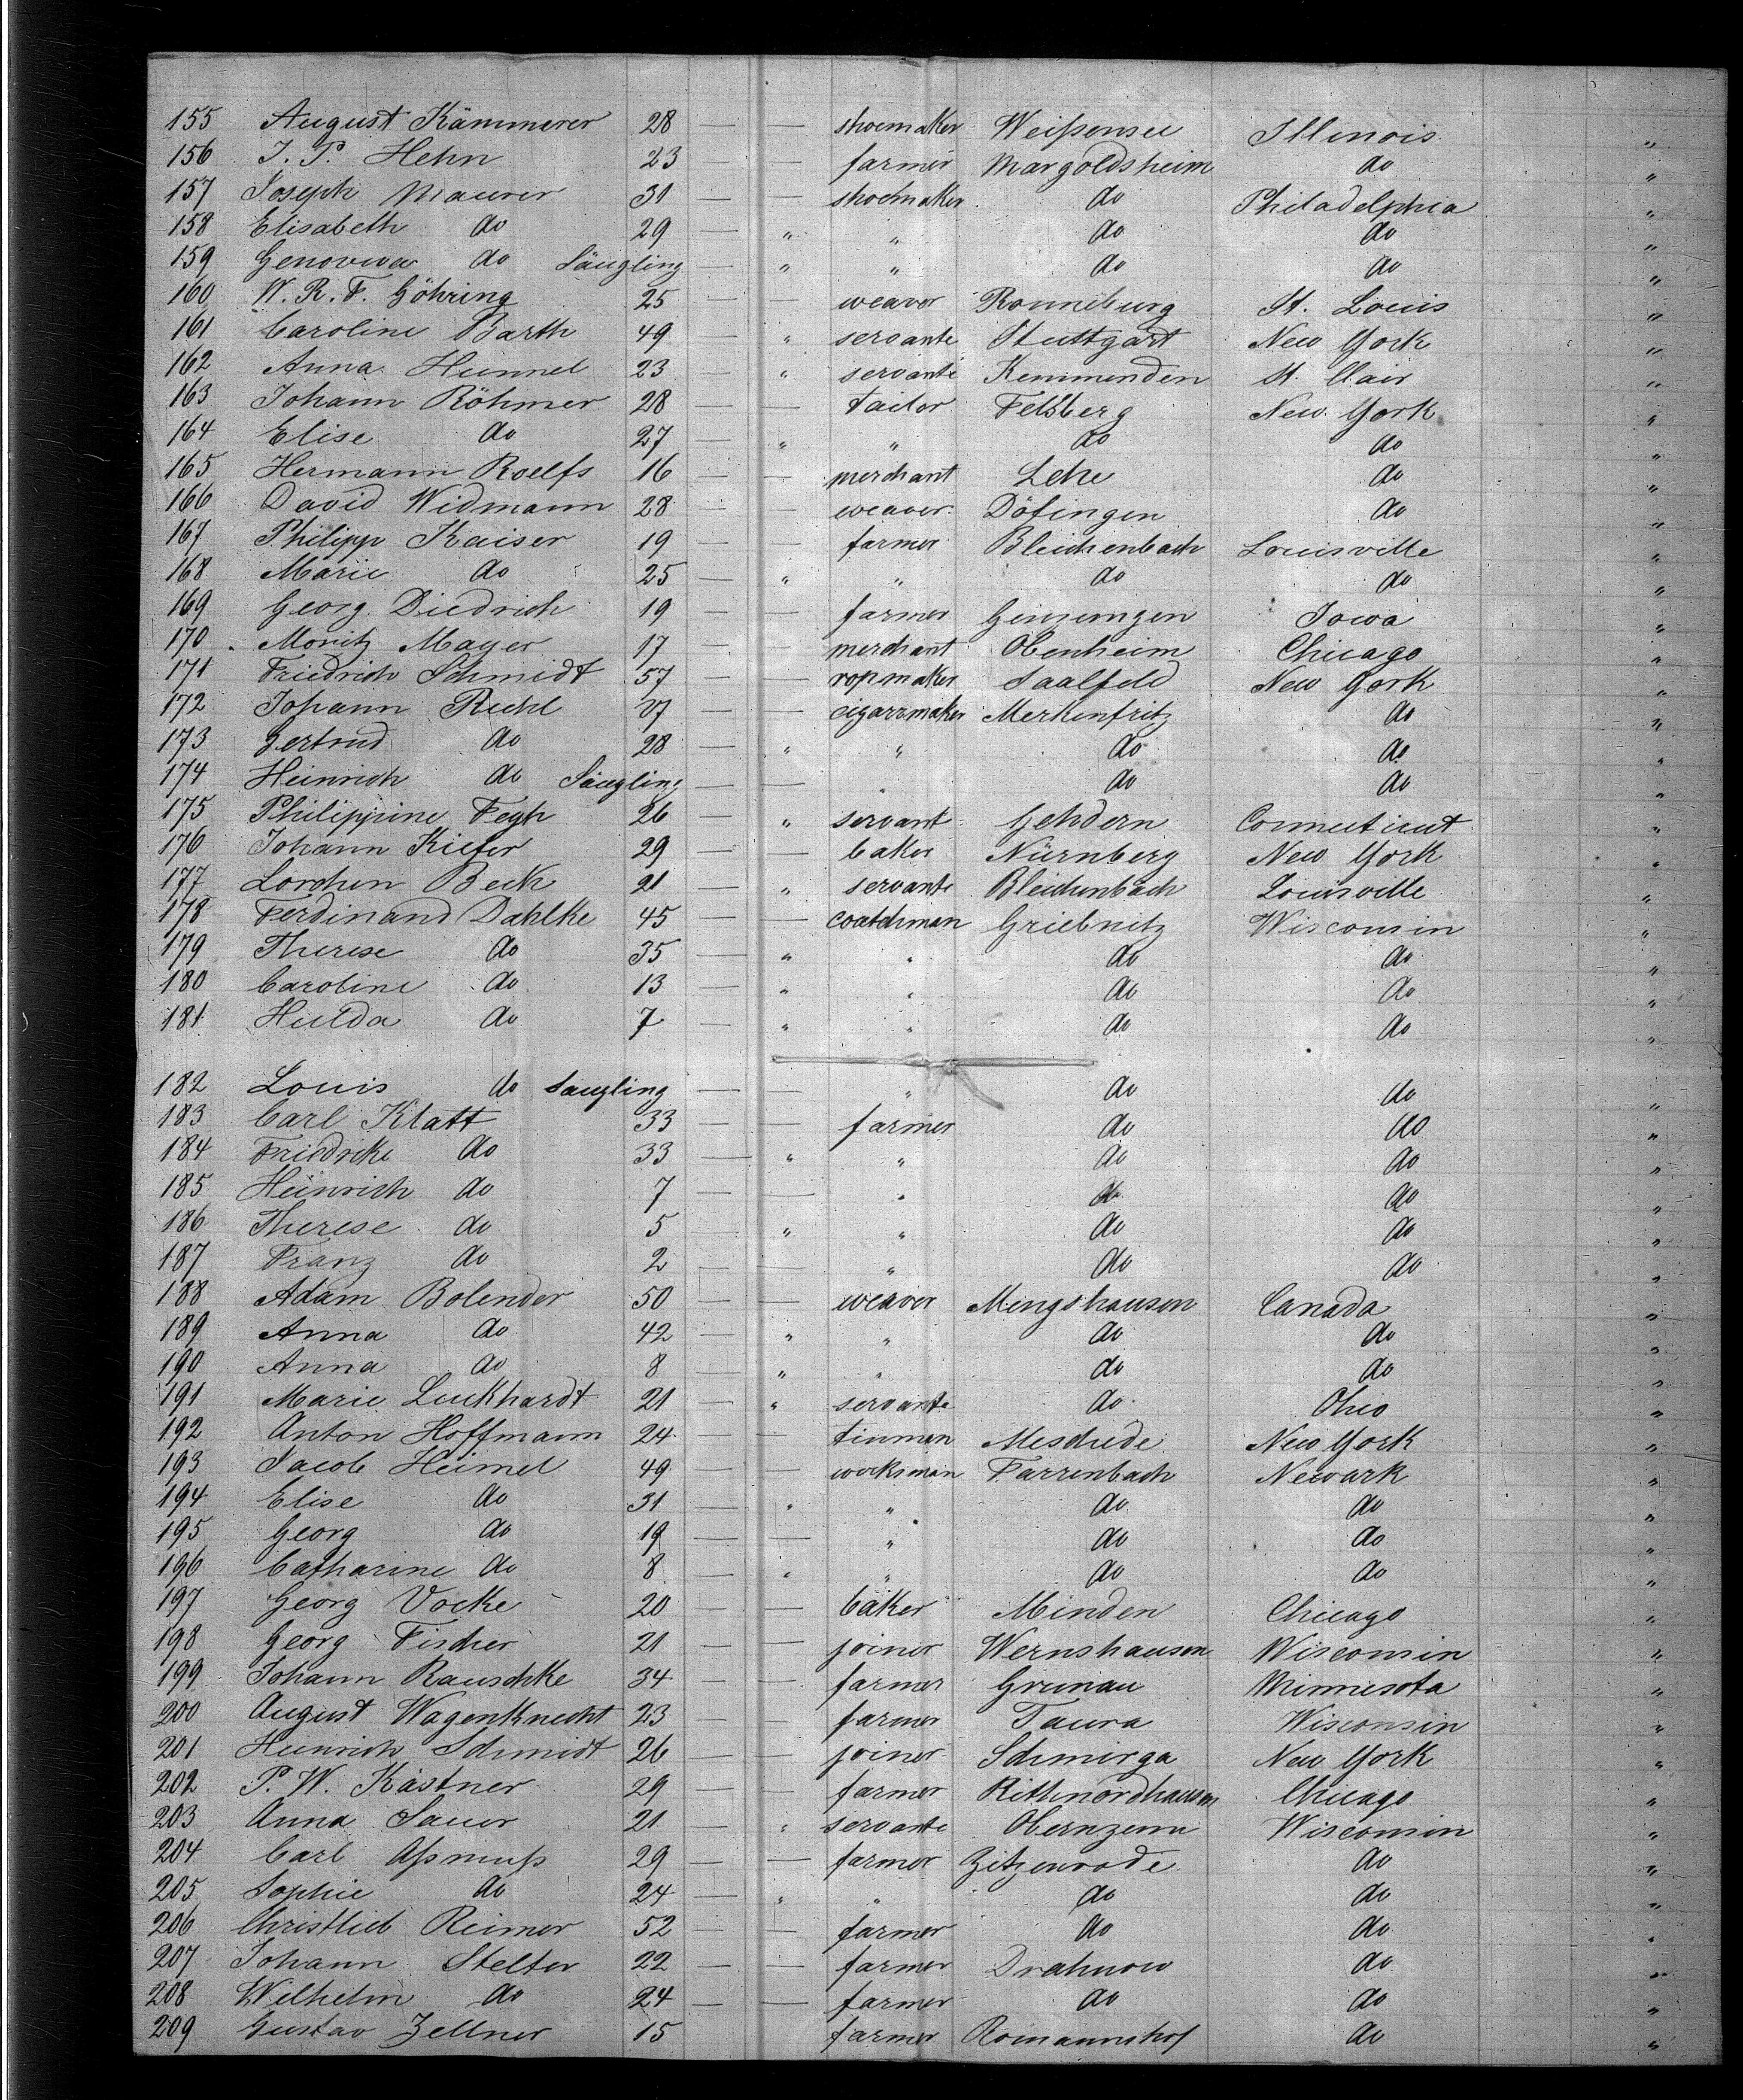 155 August Kämmerer 28 — — shoemaker Weißensee Illinois "
156 J. P. Hehn 23 — — farmer Margoldsheim do "
157 Joseph Maurer 31 — — shoemaker do Philadelphia "
158 Elisabeth do 29 — " " do do "
159 Genoveva do Säugling — " " do do "
160 W. R. F. Göhring 25 — — weaver Ronneburg St. Louis "
161 Caroline Barth 49 — " servante Stuttgart New York "
162 Anna Hummel 23 — " servante Kemmenden St. Clair "
163 Johann Röhmer 28 — — tailor Felsberg New York "
164 Elise do 27 — " " do do "
165 Hermann Roelfs 16 — — merchant Lehe do "
166 David Widmann 28 — — weaver Döfingen do "
167 Philipp Kaiser 19 — — farmer Bleichenbach Louisville "
168 Marie do 25 — " " do do "
169 Georg Diedrich 19 — — farmer Genzungen Iowa "
170 Moritz Mayer 17 — — merchant Obenheim Chicago "
171 Friedrich Schmidt 57 — — ropmaker Saalfeld New York "
172 Johann Ruhl 27 — — cigarrmaker Merkenfritz do "
173 Gertrud do 28 — " " do do "
174 Heinrich do Säugling — — " do do "
175 Philippine Fegh 26 — " servant Gehdern Connecticut "
176 Johann Kiefer 29 — — baker Nürnberg New York "
177 Lorchen Beck 21 — " servante Bleichenbach Louisville "
178 Ferdinand Dahlke 45 — — coatchman Griebnitz Wisconsin "
179 Therese do 35 — " " do do "
180 Caroline do 13 — " " do do "
181 Hulda do 7 — " " do do "
182 Louis do Saugling — — " do do "
183 Carl Klatt 33 — — farmer do do "
184 Friedricke do 33 — " " do do "
185 Heinrich do 7 — — " do do "
186 Therese do 5 — " " do do "
187 Franz do 2 — — " do do "
188 Adam Bolender 50 — — weaver Mengshausen Canada "
189 Anna do 42 — " " do do "
190 Anna do 8 — " " do do "
191 Marie Luckhardt 21 — " servante do Ohio "
192 Anton Hoffmann 24 — — tinman Meschede New York "
193 Jacob Heimel 49 — — worksman Farrenbach Newark "
194 Elise do 31 — " " do do "
195 Georg do 19 — — " do do "
196 Catharine do 8 — " " do do "
197 Georg Vocke 20 — — baker Minden Chicago "
198 Georg Fischer 21 — — joiner Wernshausen Wisconsin "
199 Johann Rauschke 34 — — farmer Grunau Minnesota "
200 August Wagenknecht 23 — — farmer Taura Wisconsin "
201 Heinrich Schmidt 26 — — joiner Schmirga New York "
202 P. W. Kästner 29 — — farmer Rithnordhausen Chicago "
203 Anna Sauer 21 — " servante Obernzenn Wisconsin "
204 Carl Aßmuß 29 — — farmer Zitzenrode do "
205 Sophie do 24 — " " do do "
206 Christlieb Reimer 52 — — farmer do do "
207 Johann Stelter 22 — — farmer Drahnow do "
208 Wilhelm do 24 — — farmer do do "
209 Gustav Zellner 15 — — farmer Romannshof do "